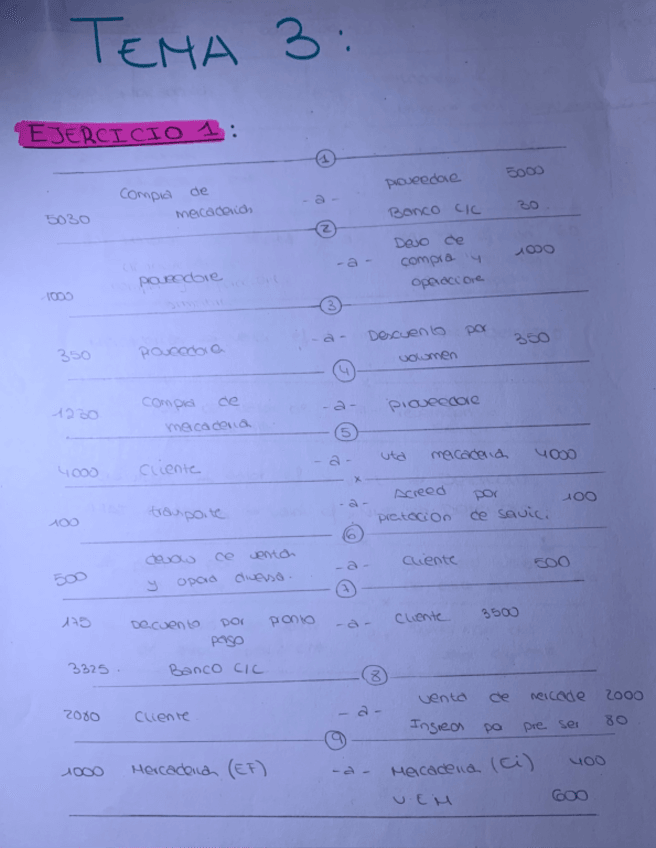 TEMA 3:
EJERCICIO 1:
1
5030 Compra de mercaderia -a- proveedore 5000
Banco C/C 30
2
1000 proveedore -a- Devo de compra y operacione 1000
3
350 proveedore -a- Descuento por volumen 350
4
1230 Compra de mercaderia -a- proveedore
5
4000 Cliente -a- vta mercaderia 4000
x
100 tranporte -a- Acreed por pretacion de servici. 100
6
500 devolu de venta y opera diversa. -a- Cliente 500
7
175 Decuento por ponto pago -a- Cliente 3500
3325. Banco C/C
8
2080 Cliente -a- venta de mercade 2000
Ingreso po pre ser 80
9
1000 Mercaderia (EF) -a- Mercaderia (Ci) 400
VEM 600